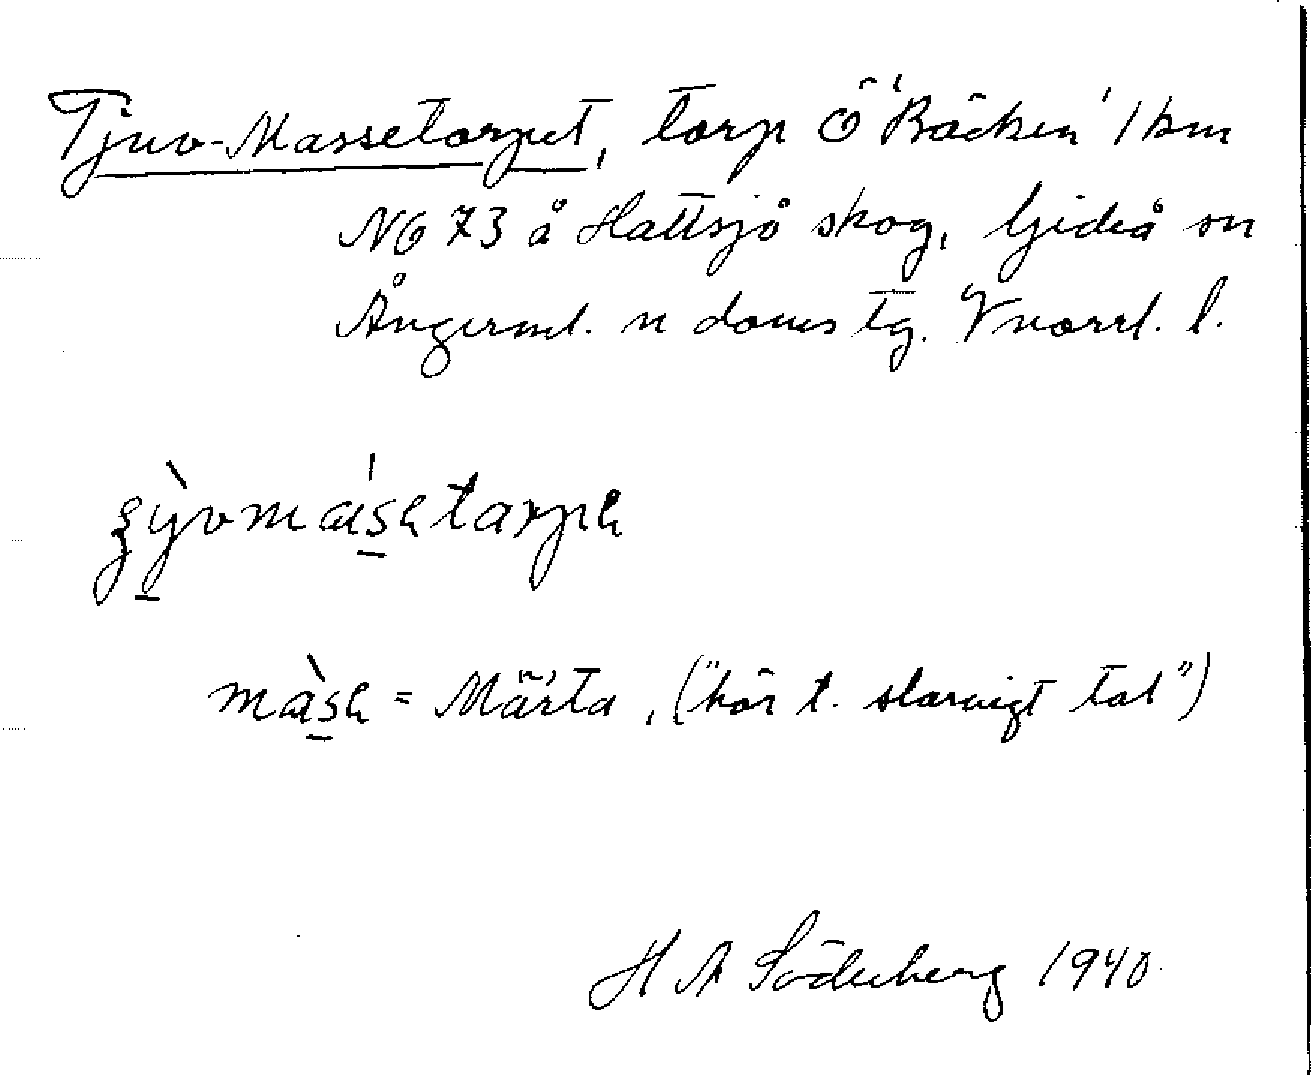 Tjuv-Massetorpet, torp Ö 'Bäcken' 1 km
NG 73 å Hattsjö skog, Gideå sn
Ångerml. n doms tg. Vnorrl. l.
måsh = Märta, ("här t. slarvigt tal")
H A Söderberg 1940